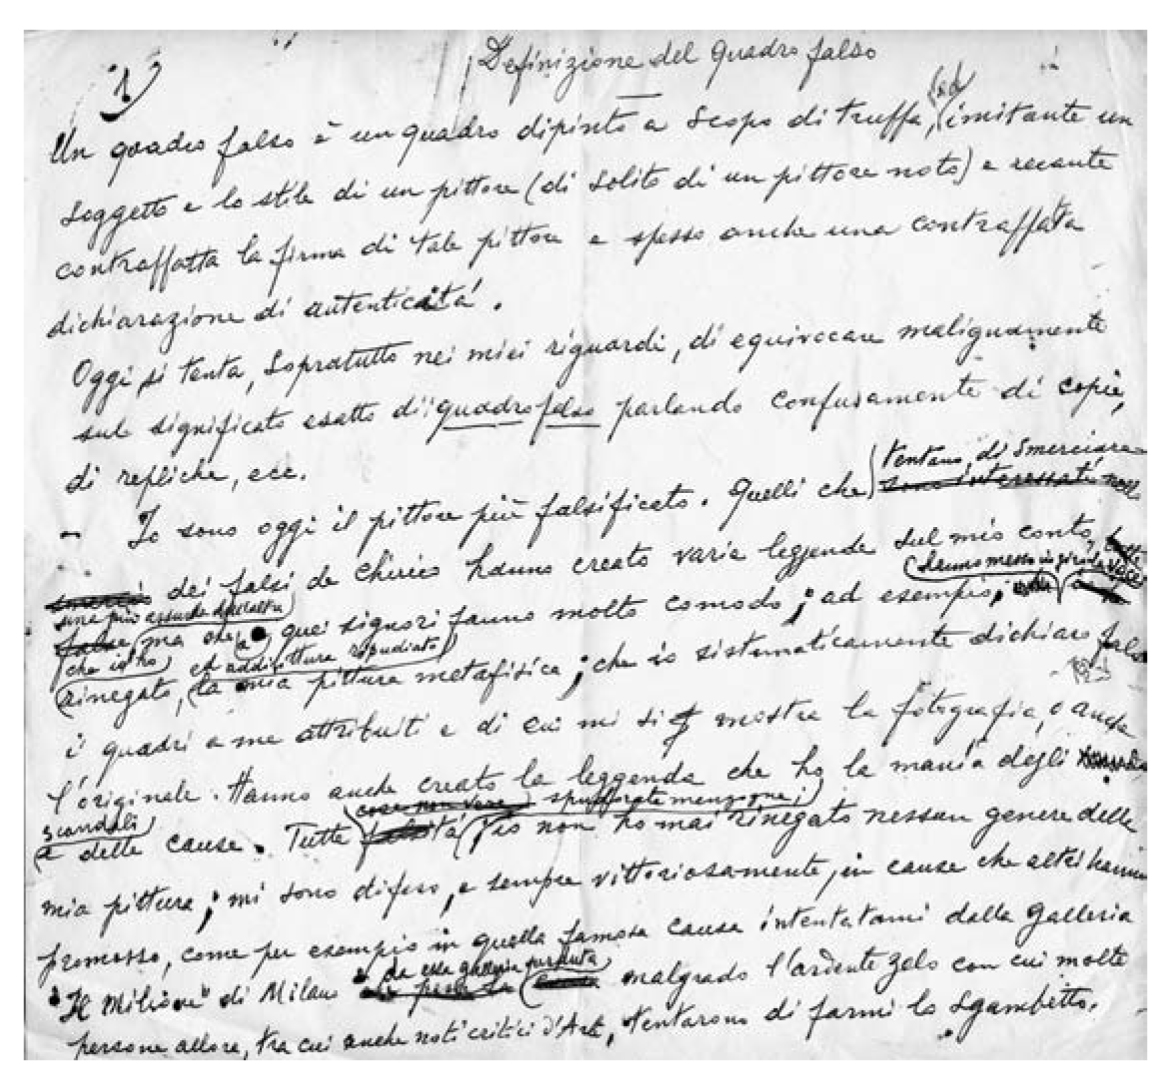 1)
Definizione del quadro falso
Un quadro falso è un quadro dipinto a scopo di truffa, (ed imitante un
soggetto e lo stile di un pittore (di solito di un pittore noto) e recante
contraffatta la firma di tale pittore e spesso anche una contraffatta
dichiarazione di autenticità.
Oggi si tenta, sopratutto nei miei riguardi, di equivocare malignamente
sul significato esatto di "quadro falso parlando confusamente di copie,
di repliche, ecc.
tentano di smerciare
– Io sono oggi il pittore più falsificato. Quelli che sono interessati
smercio dei falsi de Chirico hanno creato varie leggende sul mio conto,
(hanno messo in giro voci
una più assurda dell'altra
false ma che a quei signori fanno molto comodo; ad esempio,
che io ho ed addirittura ripudiato
rinegato, la mia pittura metafisica; che io sistematicamente dichiaro falsi
i quadri a me attribuiti e di cui mi si mostra la fotografia, o anche
l'originale. Hanno anche creato la leggenda che ho la mania degli
cose non vere spudorate menzogne;
scandali
e delle cause. Tutte falsità io non ho mai rinegato nessun genere della
mia pittura; mi sono difeso, e sempre vittoriosamente, in cause che altri hanno
promosso, come per esempio in quella famosa causa intentatami dalla Galleria
da essa galleria perduta
"Il Milione" di Milano malgrado l'ardente zelo con cui molte
persone allora, tra cui anche noti critici d'Arte, tentarono di farmi lo sgambetto.